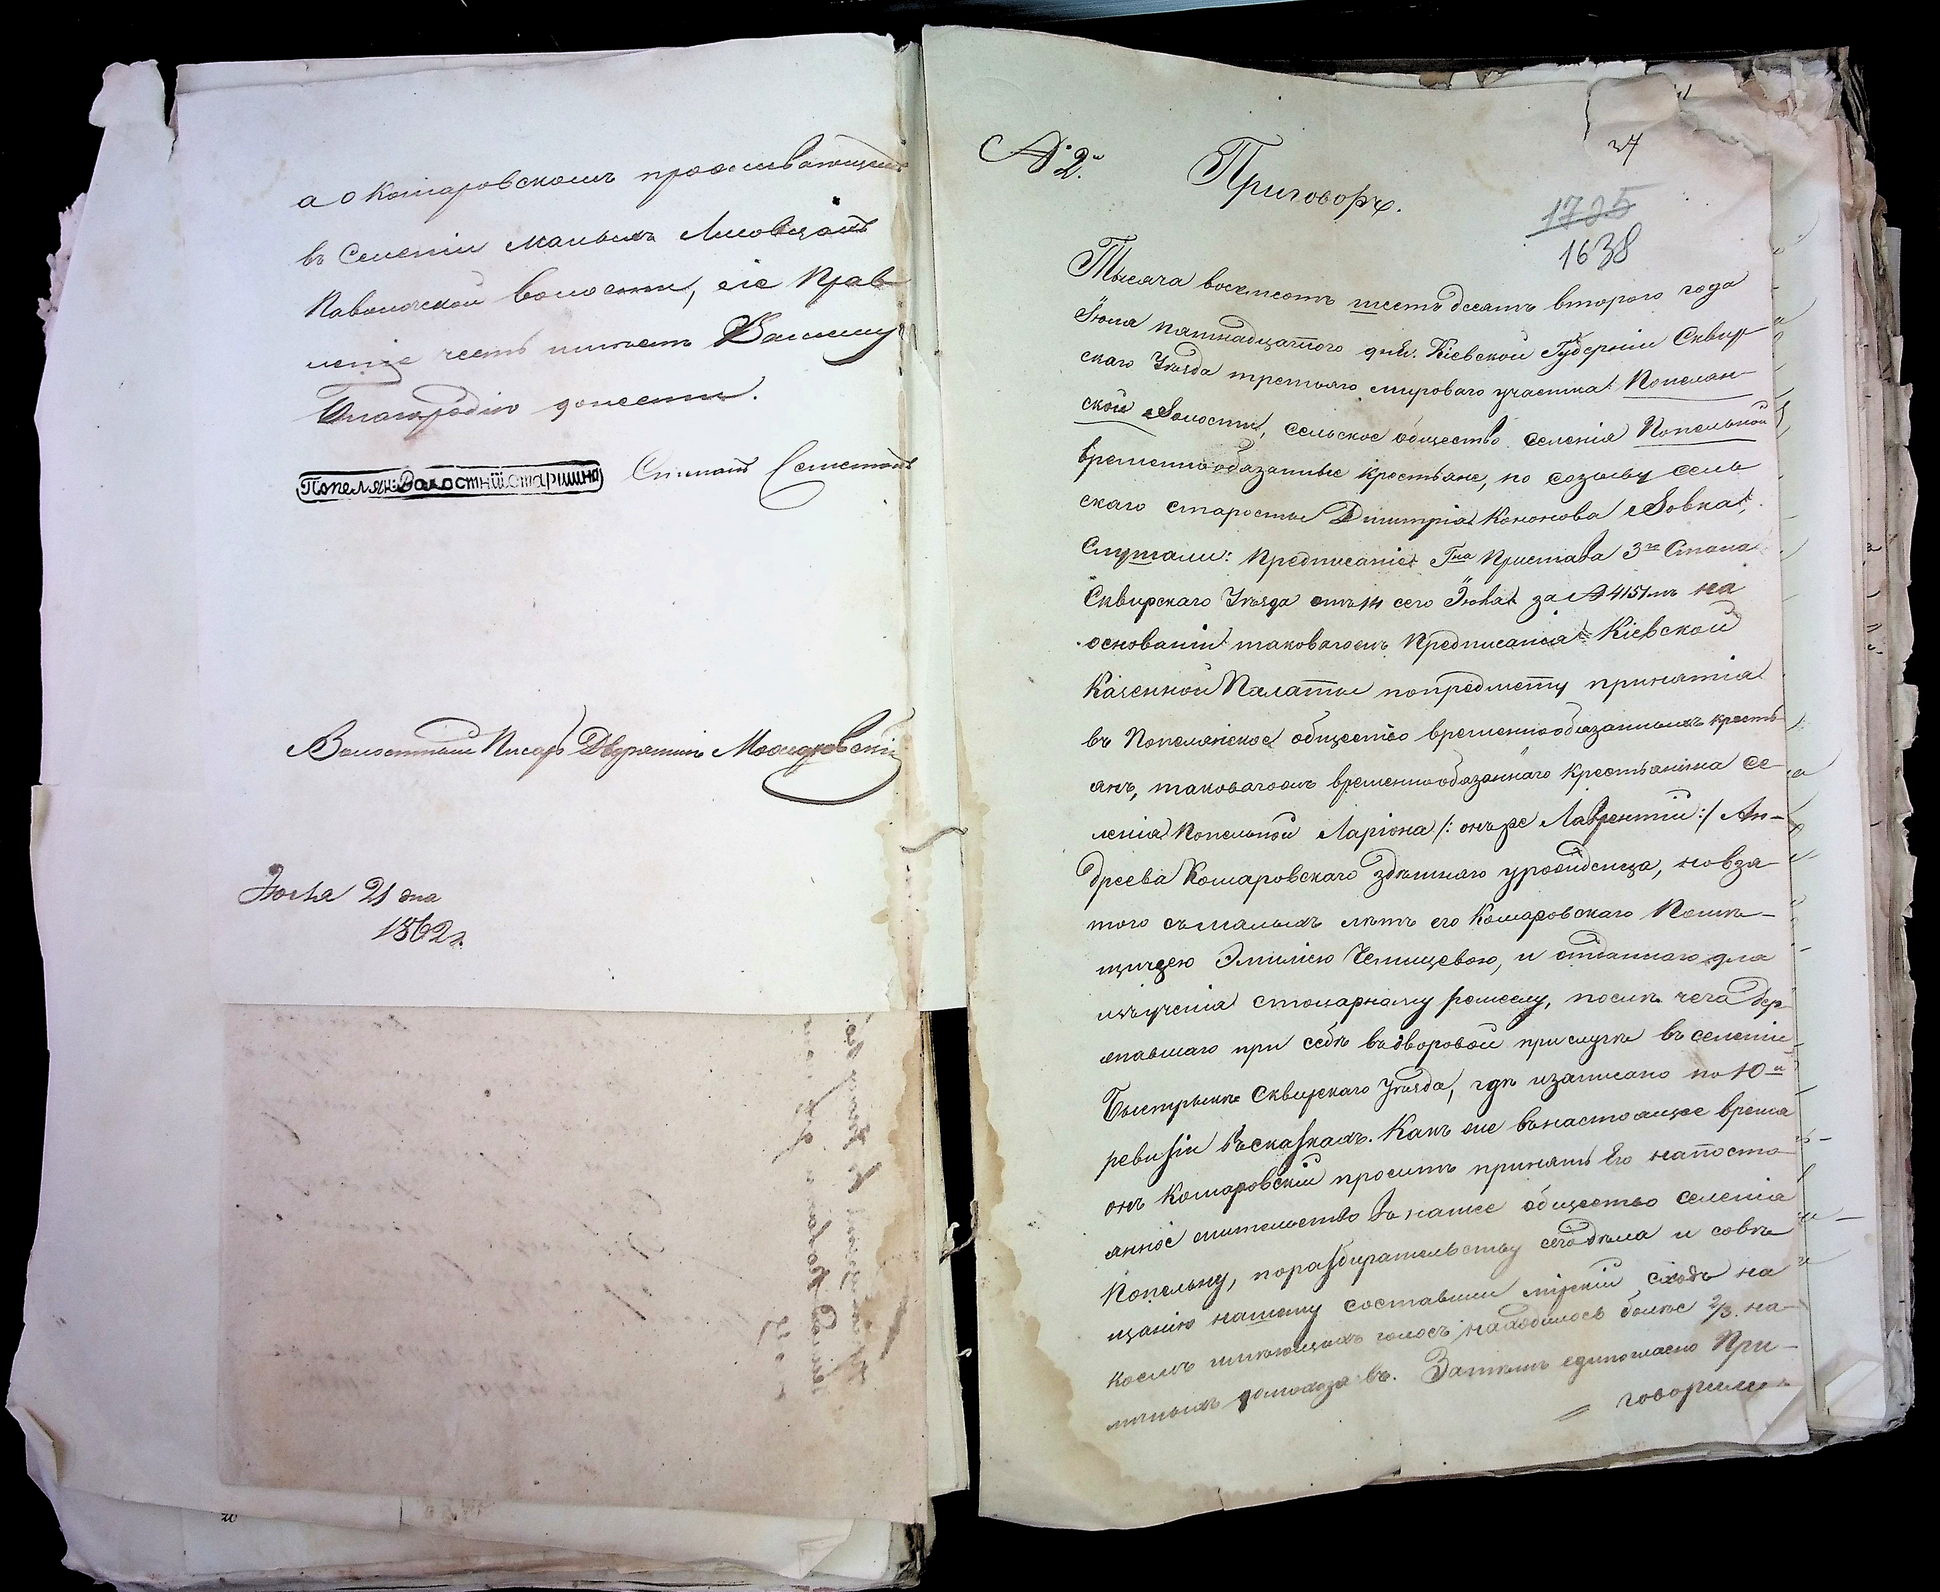 а о Комаровскомъ проживающемъ
въ Селеніи Малыхъ Лисовцахъ
Паволочской волости, сіе Прав
леніе честь имѣетъ Вашему
Благородію донести.
Попелян: Волостній Старшина Степанъ
Волостный Писарь Дворянинъ
Іюля 21 дня
1862 г.
№ 2й
Приговоръ.
37
1725
1638
Тысяча восемсотъ шестьдесятъ второго года
Іюля пятнадцатого дня. Кіевской Губерніи Сквир
скаго Уѣзда третьяго мироваго участка Попелян-
ской Волости, сельское общество селенія Попельной
временнообязанные крестьяне, по созыву сель
скаго старосты Димитрія Кононова Вовка,
Слушали: Предписаніе Гна Пристава 3го Стана
Сквирскаго Уѣзда отъ 14 сего Іюля за № 4151мъ на
основаніи таковагоже Предписанія Кіевской
Казенной Палаты попредмету принятія
въ Попелянское общество временнообязанныхъ кресть
янъ, таковагожъ временнообязаннаго крестьянина се-
ленія Попельной Ларіона /: онъ же Лаврентій :/ Ан-
дреева Комаровскаго здѣшняго урождсица, но взя
того съ малыхъ лѣтъ его Комаровскаго Помѣ-
щицею Эмиліею, и отданнаго для
изъученія столарному ромеслу, послѣ чего дер
жавшаго при себѣ въ дворовой прислугѣ въ селеніи
Быстрыкѣ Сквирскаго Уѣзда, гдѣ и записано по 10й
ревизіи въ сказкахъ. Какъ же въ настоящее время
онъ Комаровскій проситъ принять Его на посто
янное жительство въ наше общество селенія
Попельну, поразбирательству сего дѣла и совѣ
щанію нашему составили мірскій сходъ на
коемъ имѣющихъ голосъ находилось болѣе 2/3. на-
личныхъ домохозяевъ. Затѣмъ единогласно При-
говорили